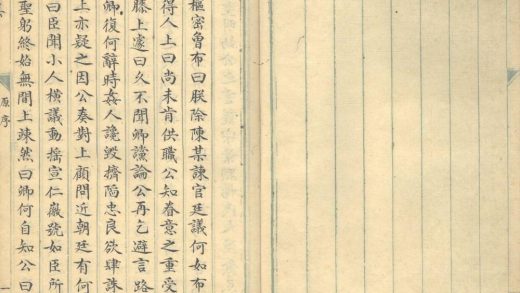 樞密魯布曰朕除陳某諫官廷議何如布
得人上曰尚未肯供職公知眷意之重受
牒上遽曰久不聞卿讜論公再乞避言路
卿復何辭時姦人讒毀擠陷忠良欲肆誅
上亦疑之因公奏對上顧問近朝廷有何
曰臣聞小人橫議動搖宣仁徽號如臣所
聖躬終始無間上竦然曰卿何自知公曰
原序
一